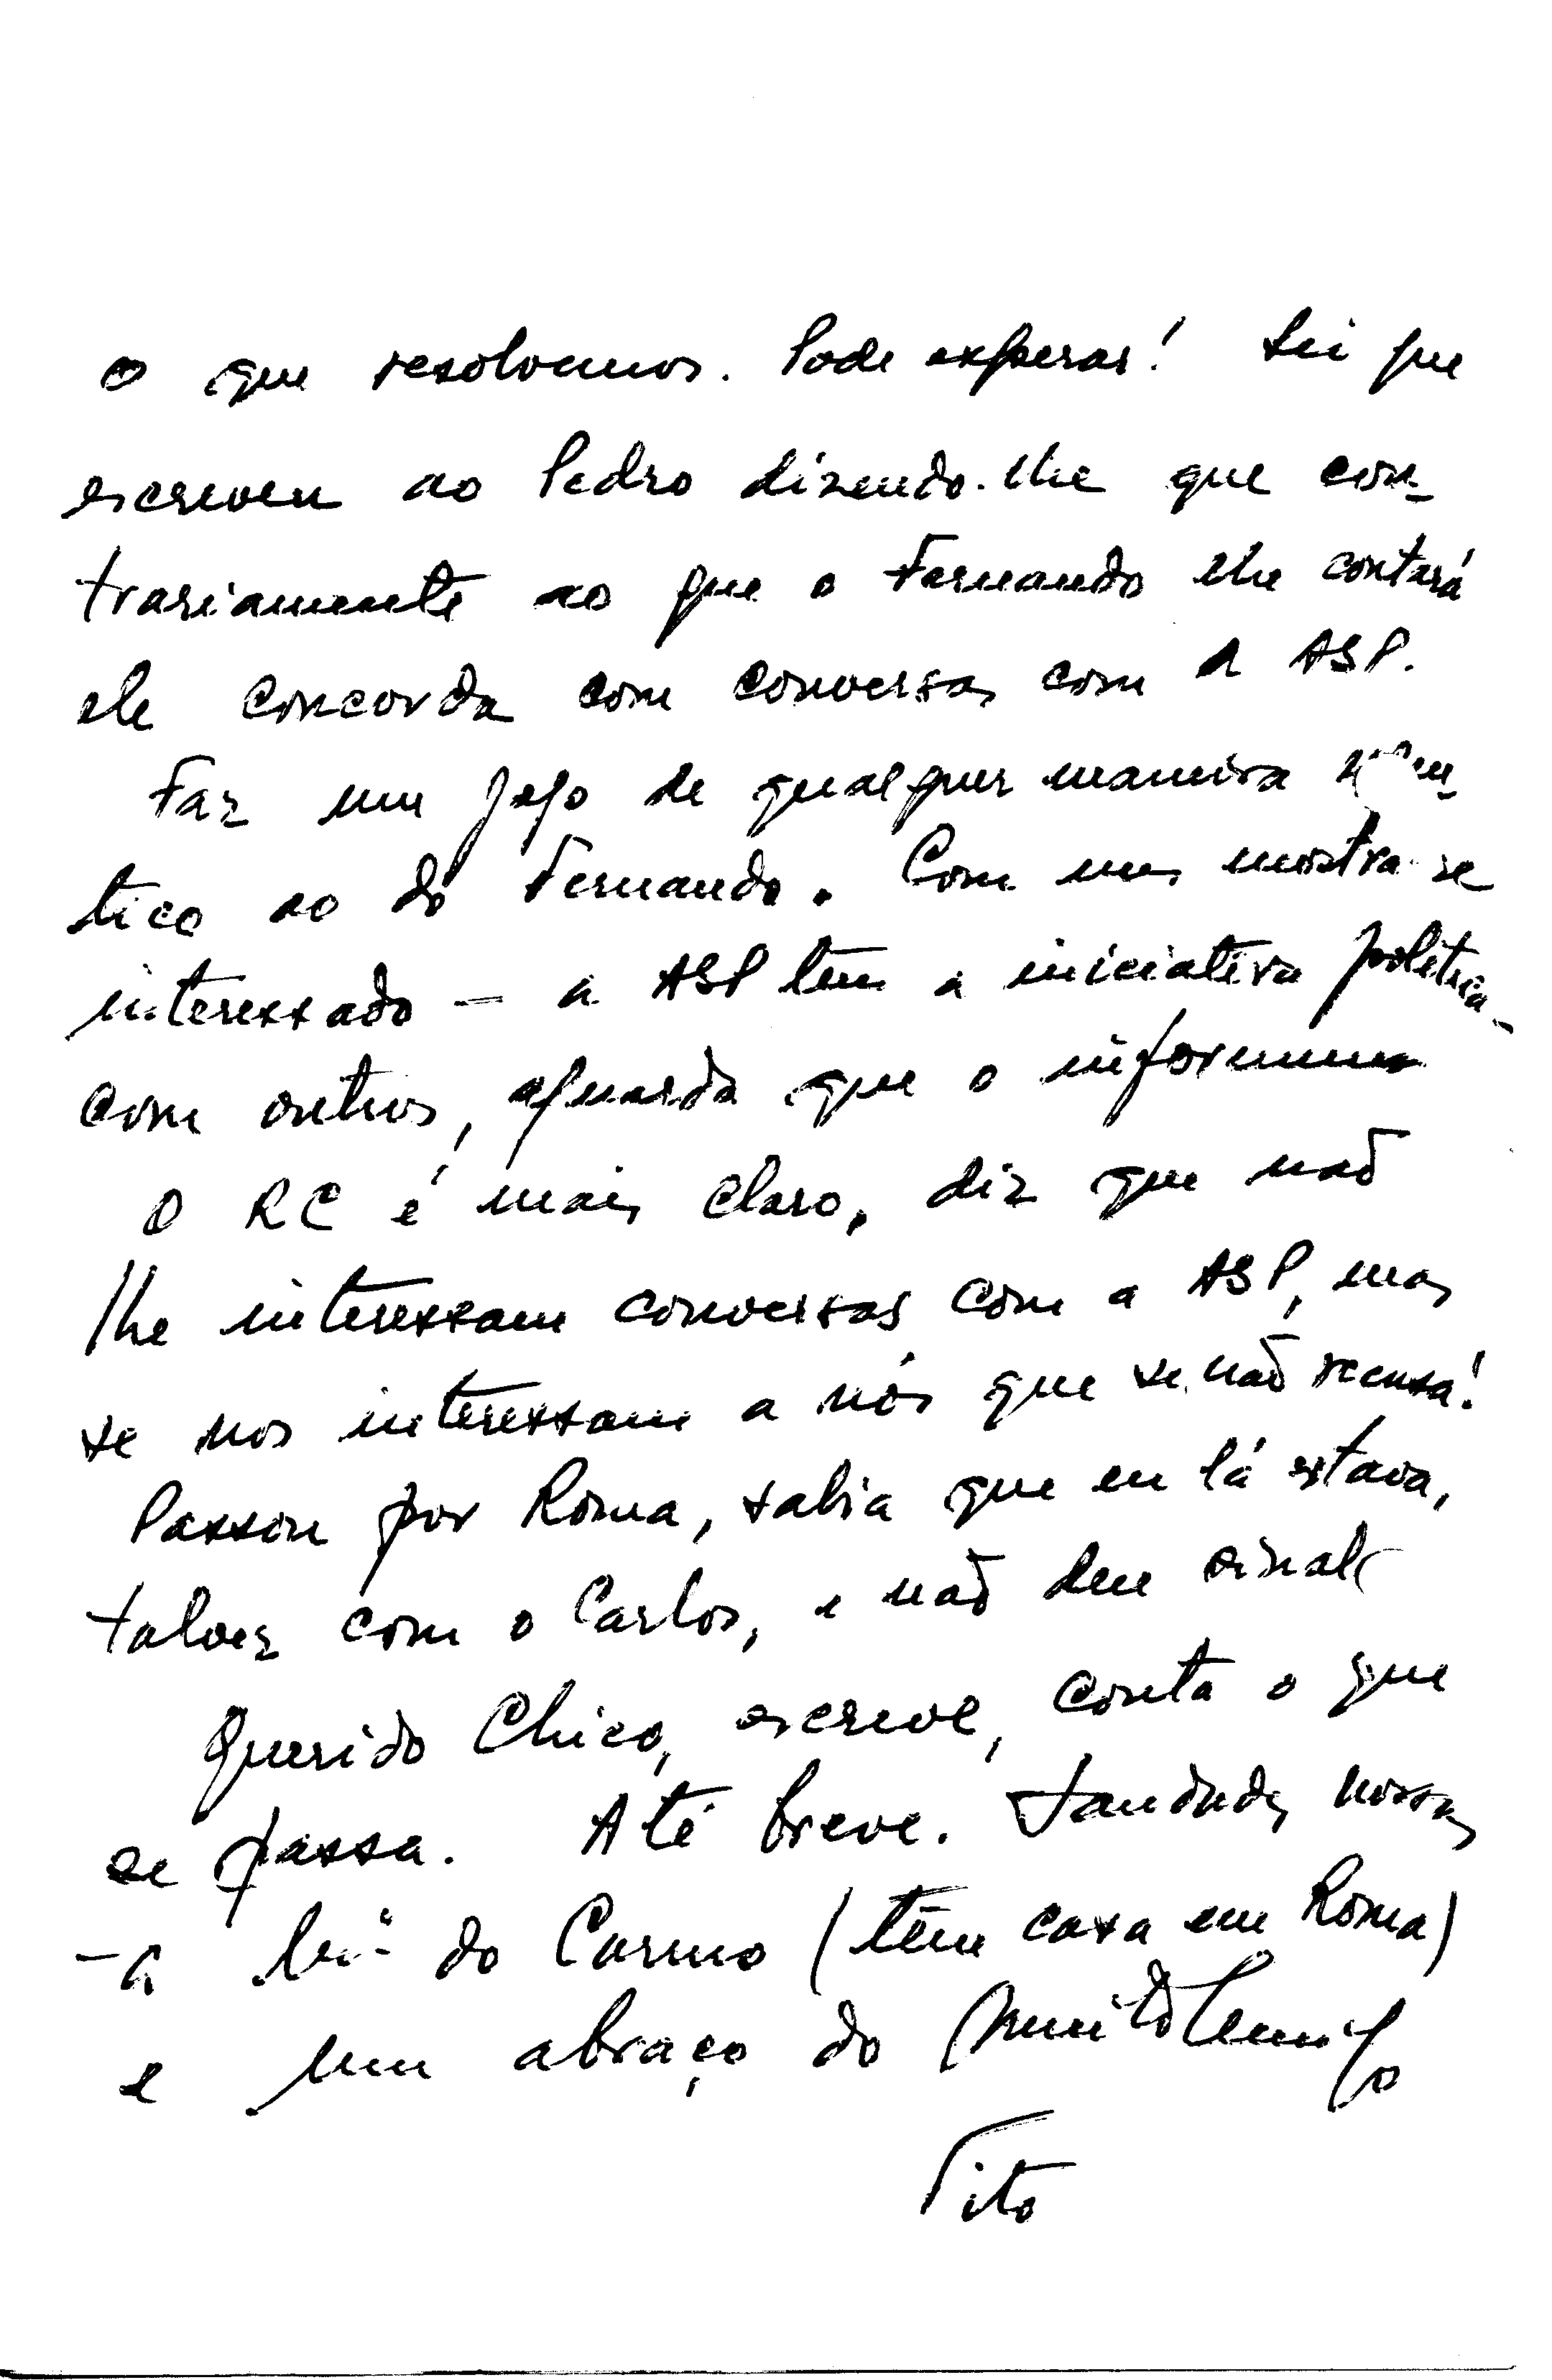 o que resolvemos. Pode esperar! Sei que
escreveu ao Pedro dizendo-lhe que con-
trariamente ao que o Fernando lhe contará
ele concorda com conversas com a ASP.
Faz um jogo de qualquer maneira
tico ao do Fernando. Com uns mostra-se
interessado — a ASP tem a iniciativa politica -
com outros, aguarda que o informem
O RC é mais claro, diz que não
lhe interessam conversas com a ASP, mas
se nos interessam a nós que se não recusa!
Passou por Roma, sabia que eu lá estava,
talvez com o Carlos, e não deu sinal
Querido Chico, escreve, conta o que
se passa. Até breve. Saudades nossas
-à Mª do Carmo (têm casa em Roma)
e um abraço do muito amigo
Tito